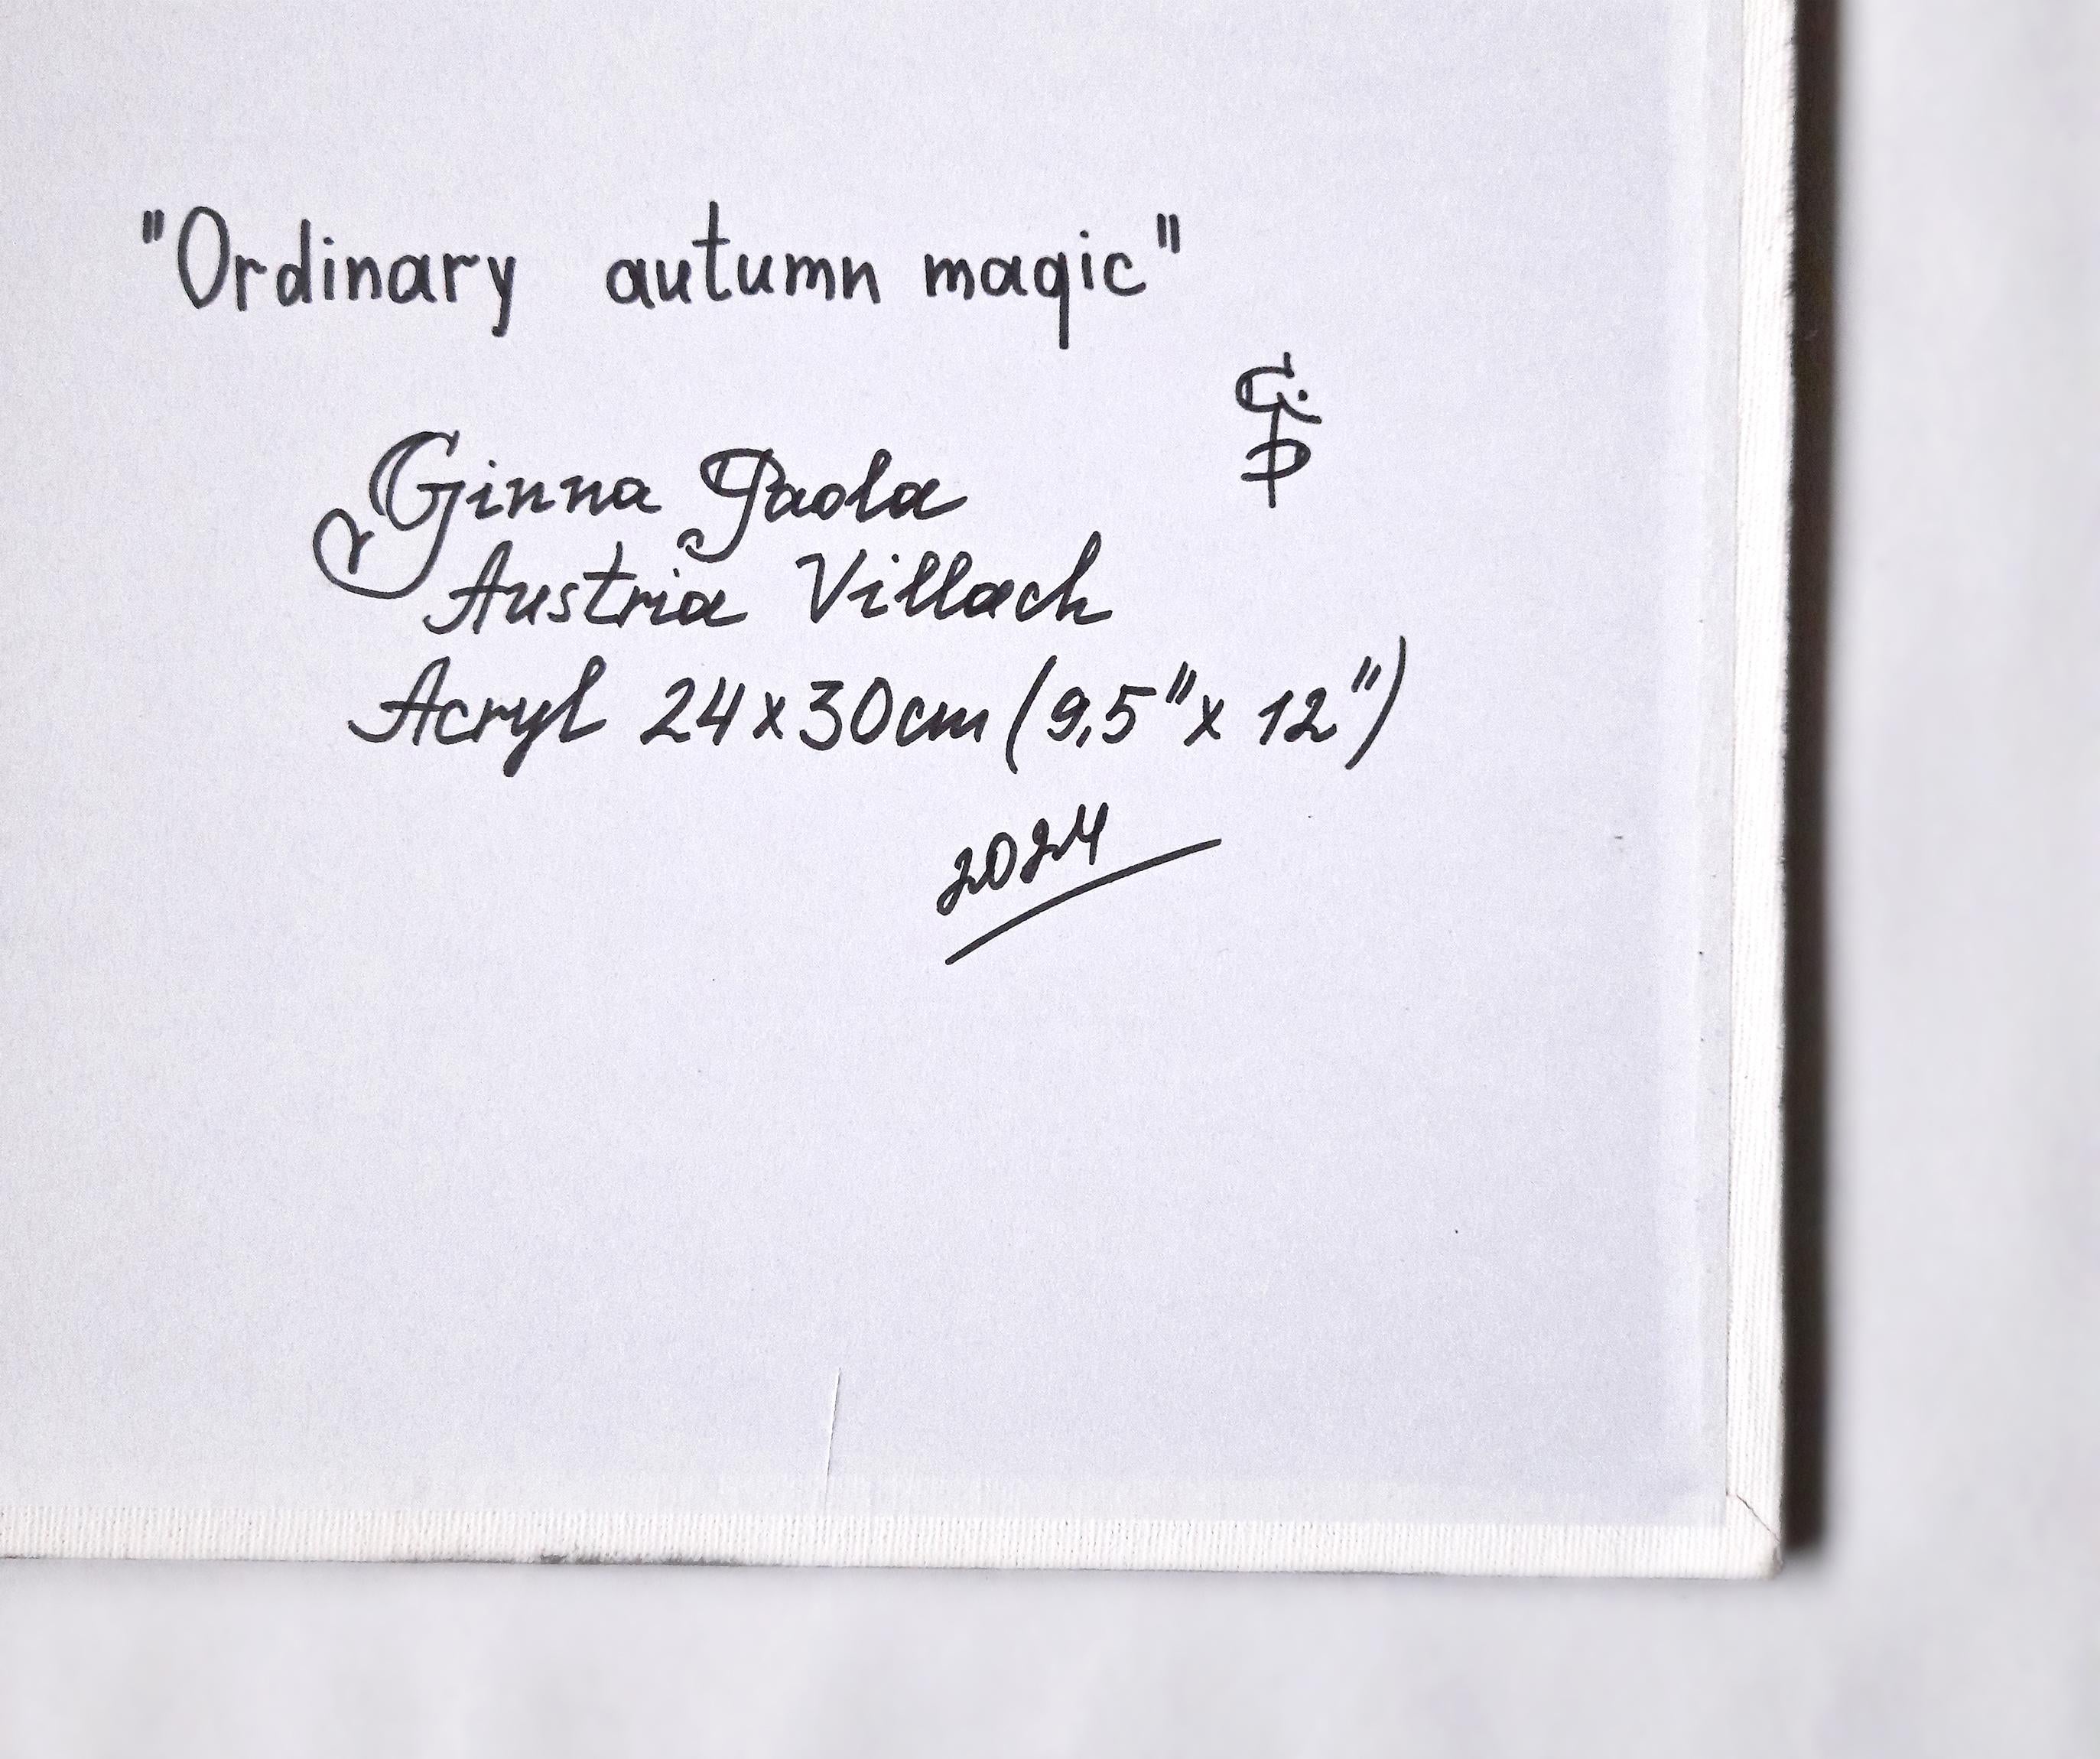 "Ordinary autumn magic"
G.P
Ginna Paola
Austria Villach
Acryl 24x30cm (9,5"x 12")
2024